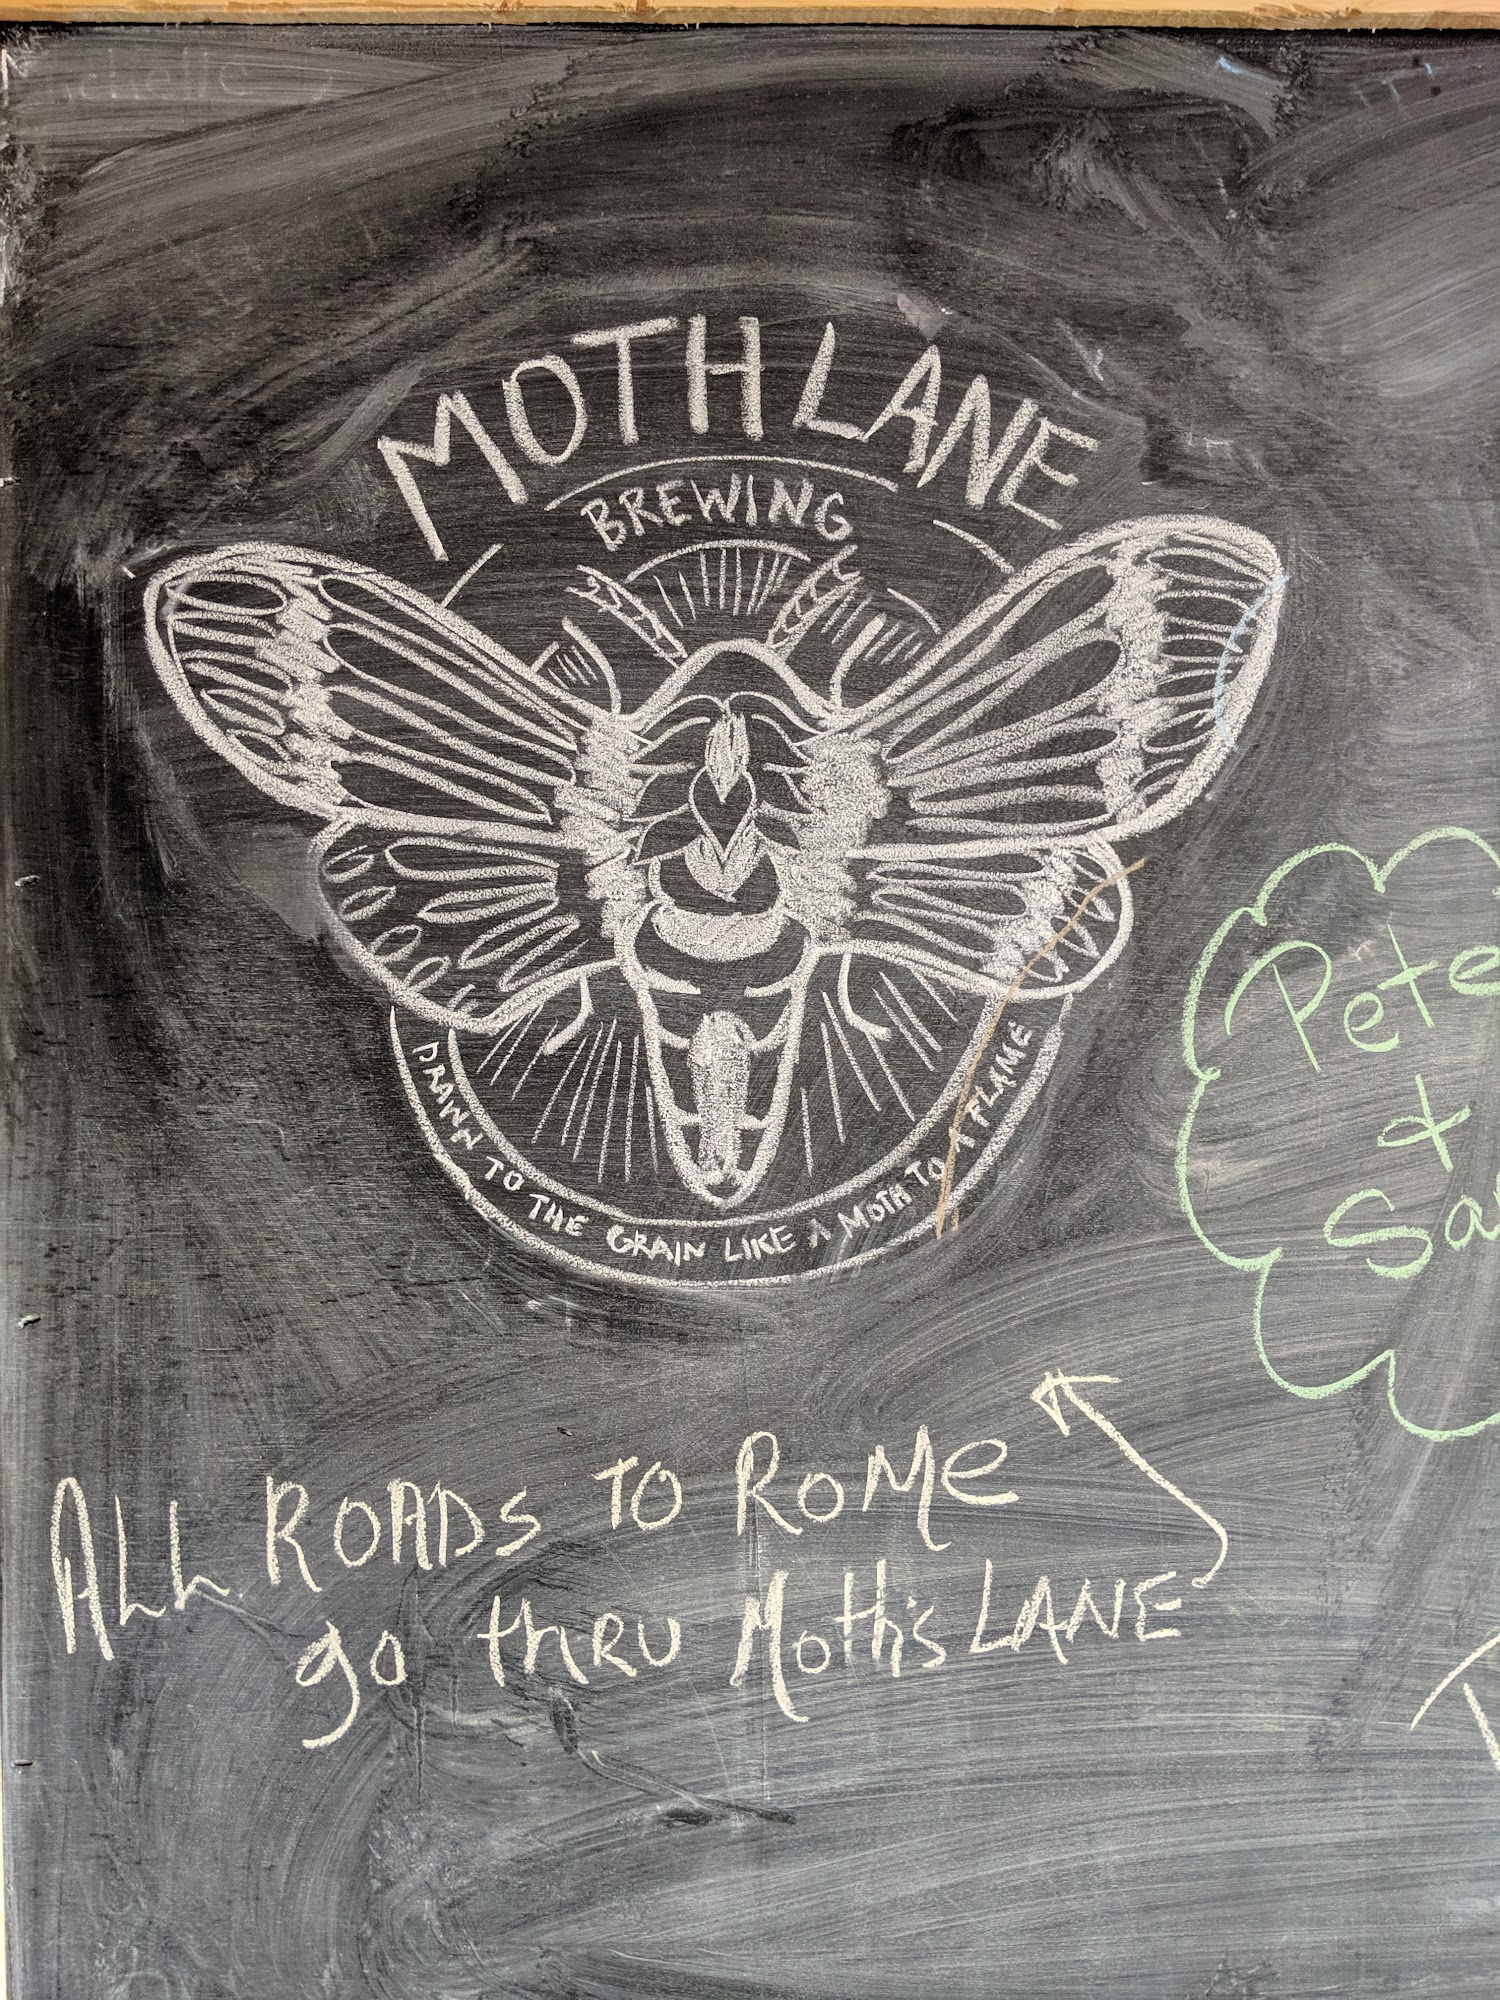 MOTH LANE
BREWING
DRAWN TO THE GRAIN LIKE A MOTH TO A FLAME
Pete
&
ALL ROADS TO ROME
go thru Moth's LANE